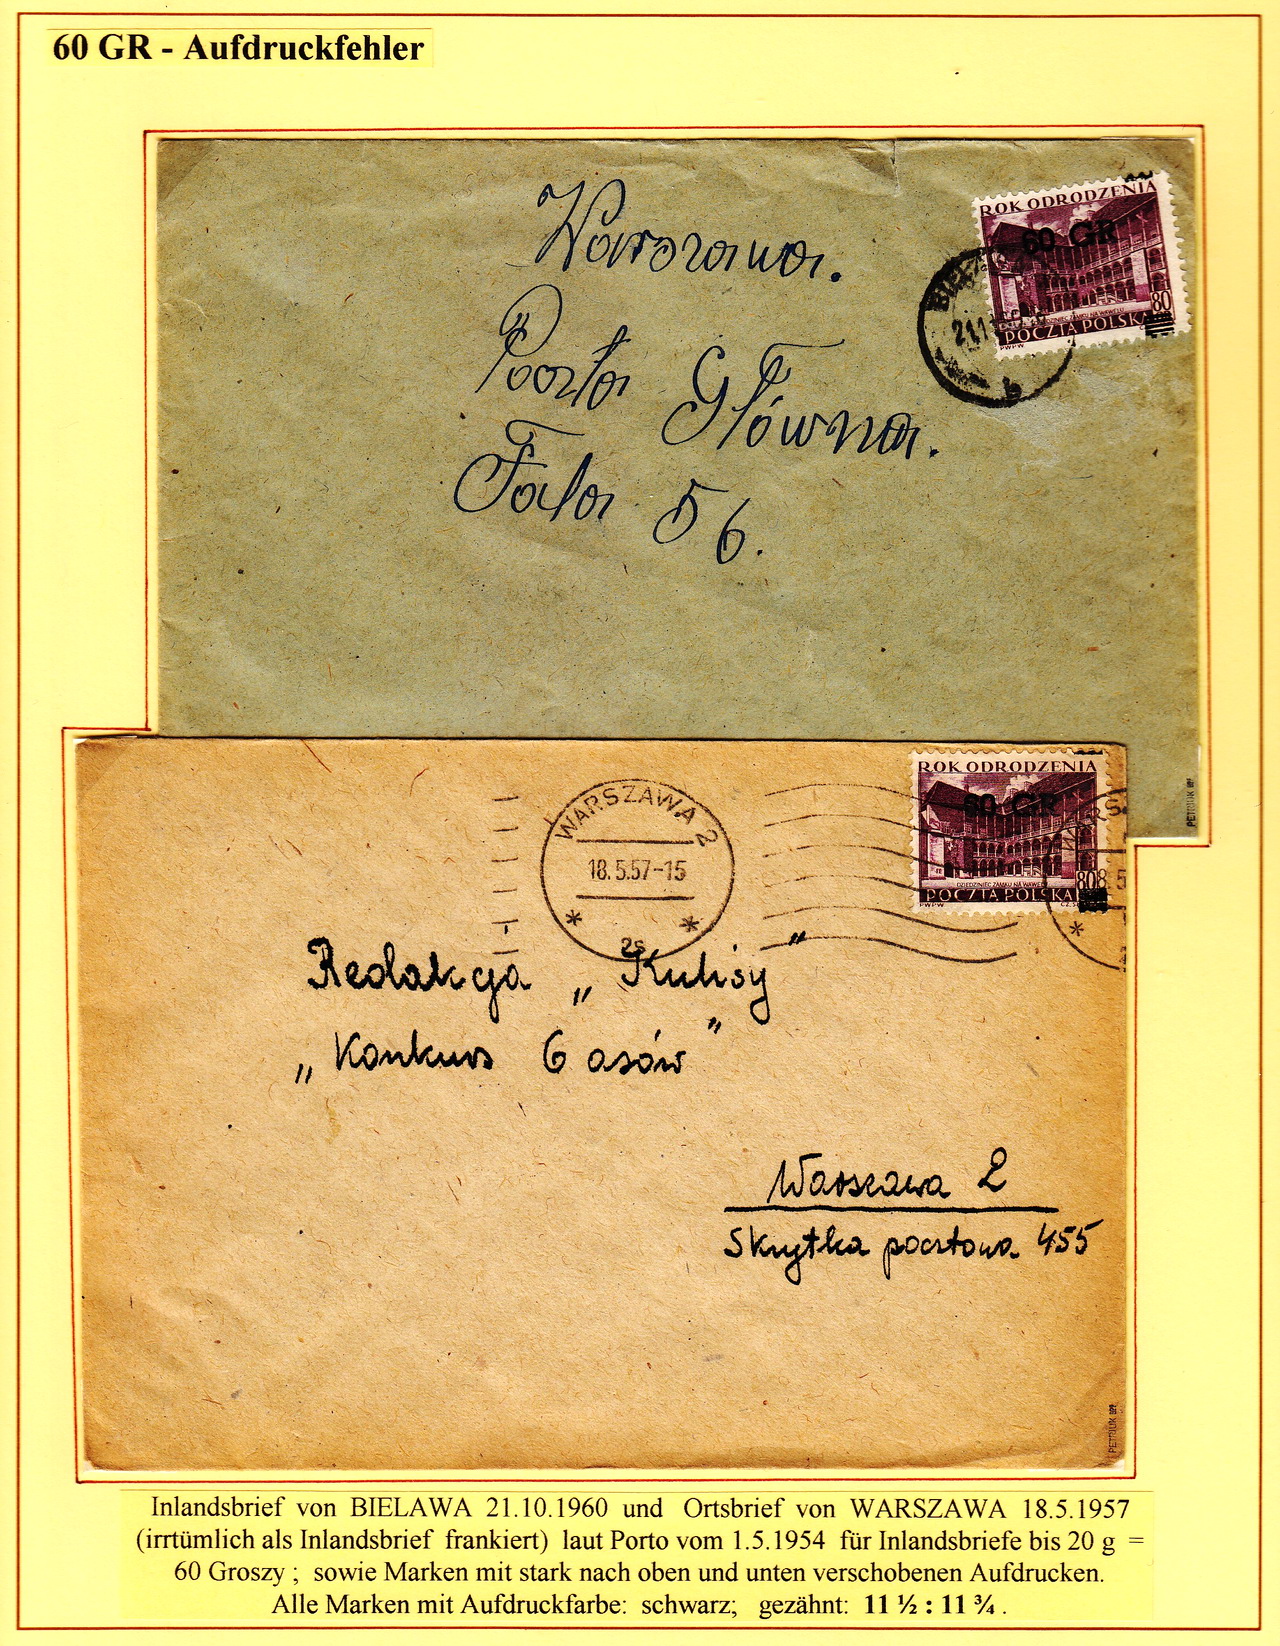 60 GR - Aufdruckfehler
Warszawa.
Poczta Główna.
Fala 56.
ROK ODRODZENIA
60 GR
80
DZIEDZINIEC ZAMKU NA WAWELU
POCZTA POLSKA
PWPW
BIELAWA
21.1
b
PETRIUK BPP
WARSZAWA 2
18.5.57-15
2s
ROK ODRODZENIA
60 GR
80
DZIEDZINIEC ZAMKU NA WAWELU
POCZTA POLSKA
PWPW
Redakcja „Kulisy"
„Konkurs 6 asów"
Warszawa 2
Skrytka pocztowa 455
PETRIUK BPP
Inlandsbrief von BIELAWA 21.10.1960 und Ortsbrief von WARSZAWA 18.5.1957
(irrtümlich als Inlandsbrief frankiert) laut Porto vom 1.5.1954 für Inlandsbriefe bis 20 g =
60 Groszy ; sowie Marken mit stark nach oben und unten verschobenen Aufdrucken.
Alle Marken mit Aufdruckfarbe: schwarz; gezähnt: 11 ½ : 11 ¾ .